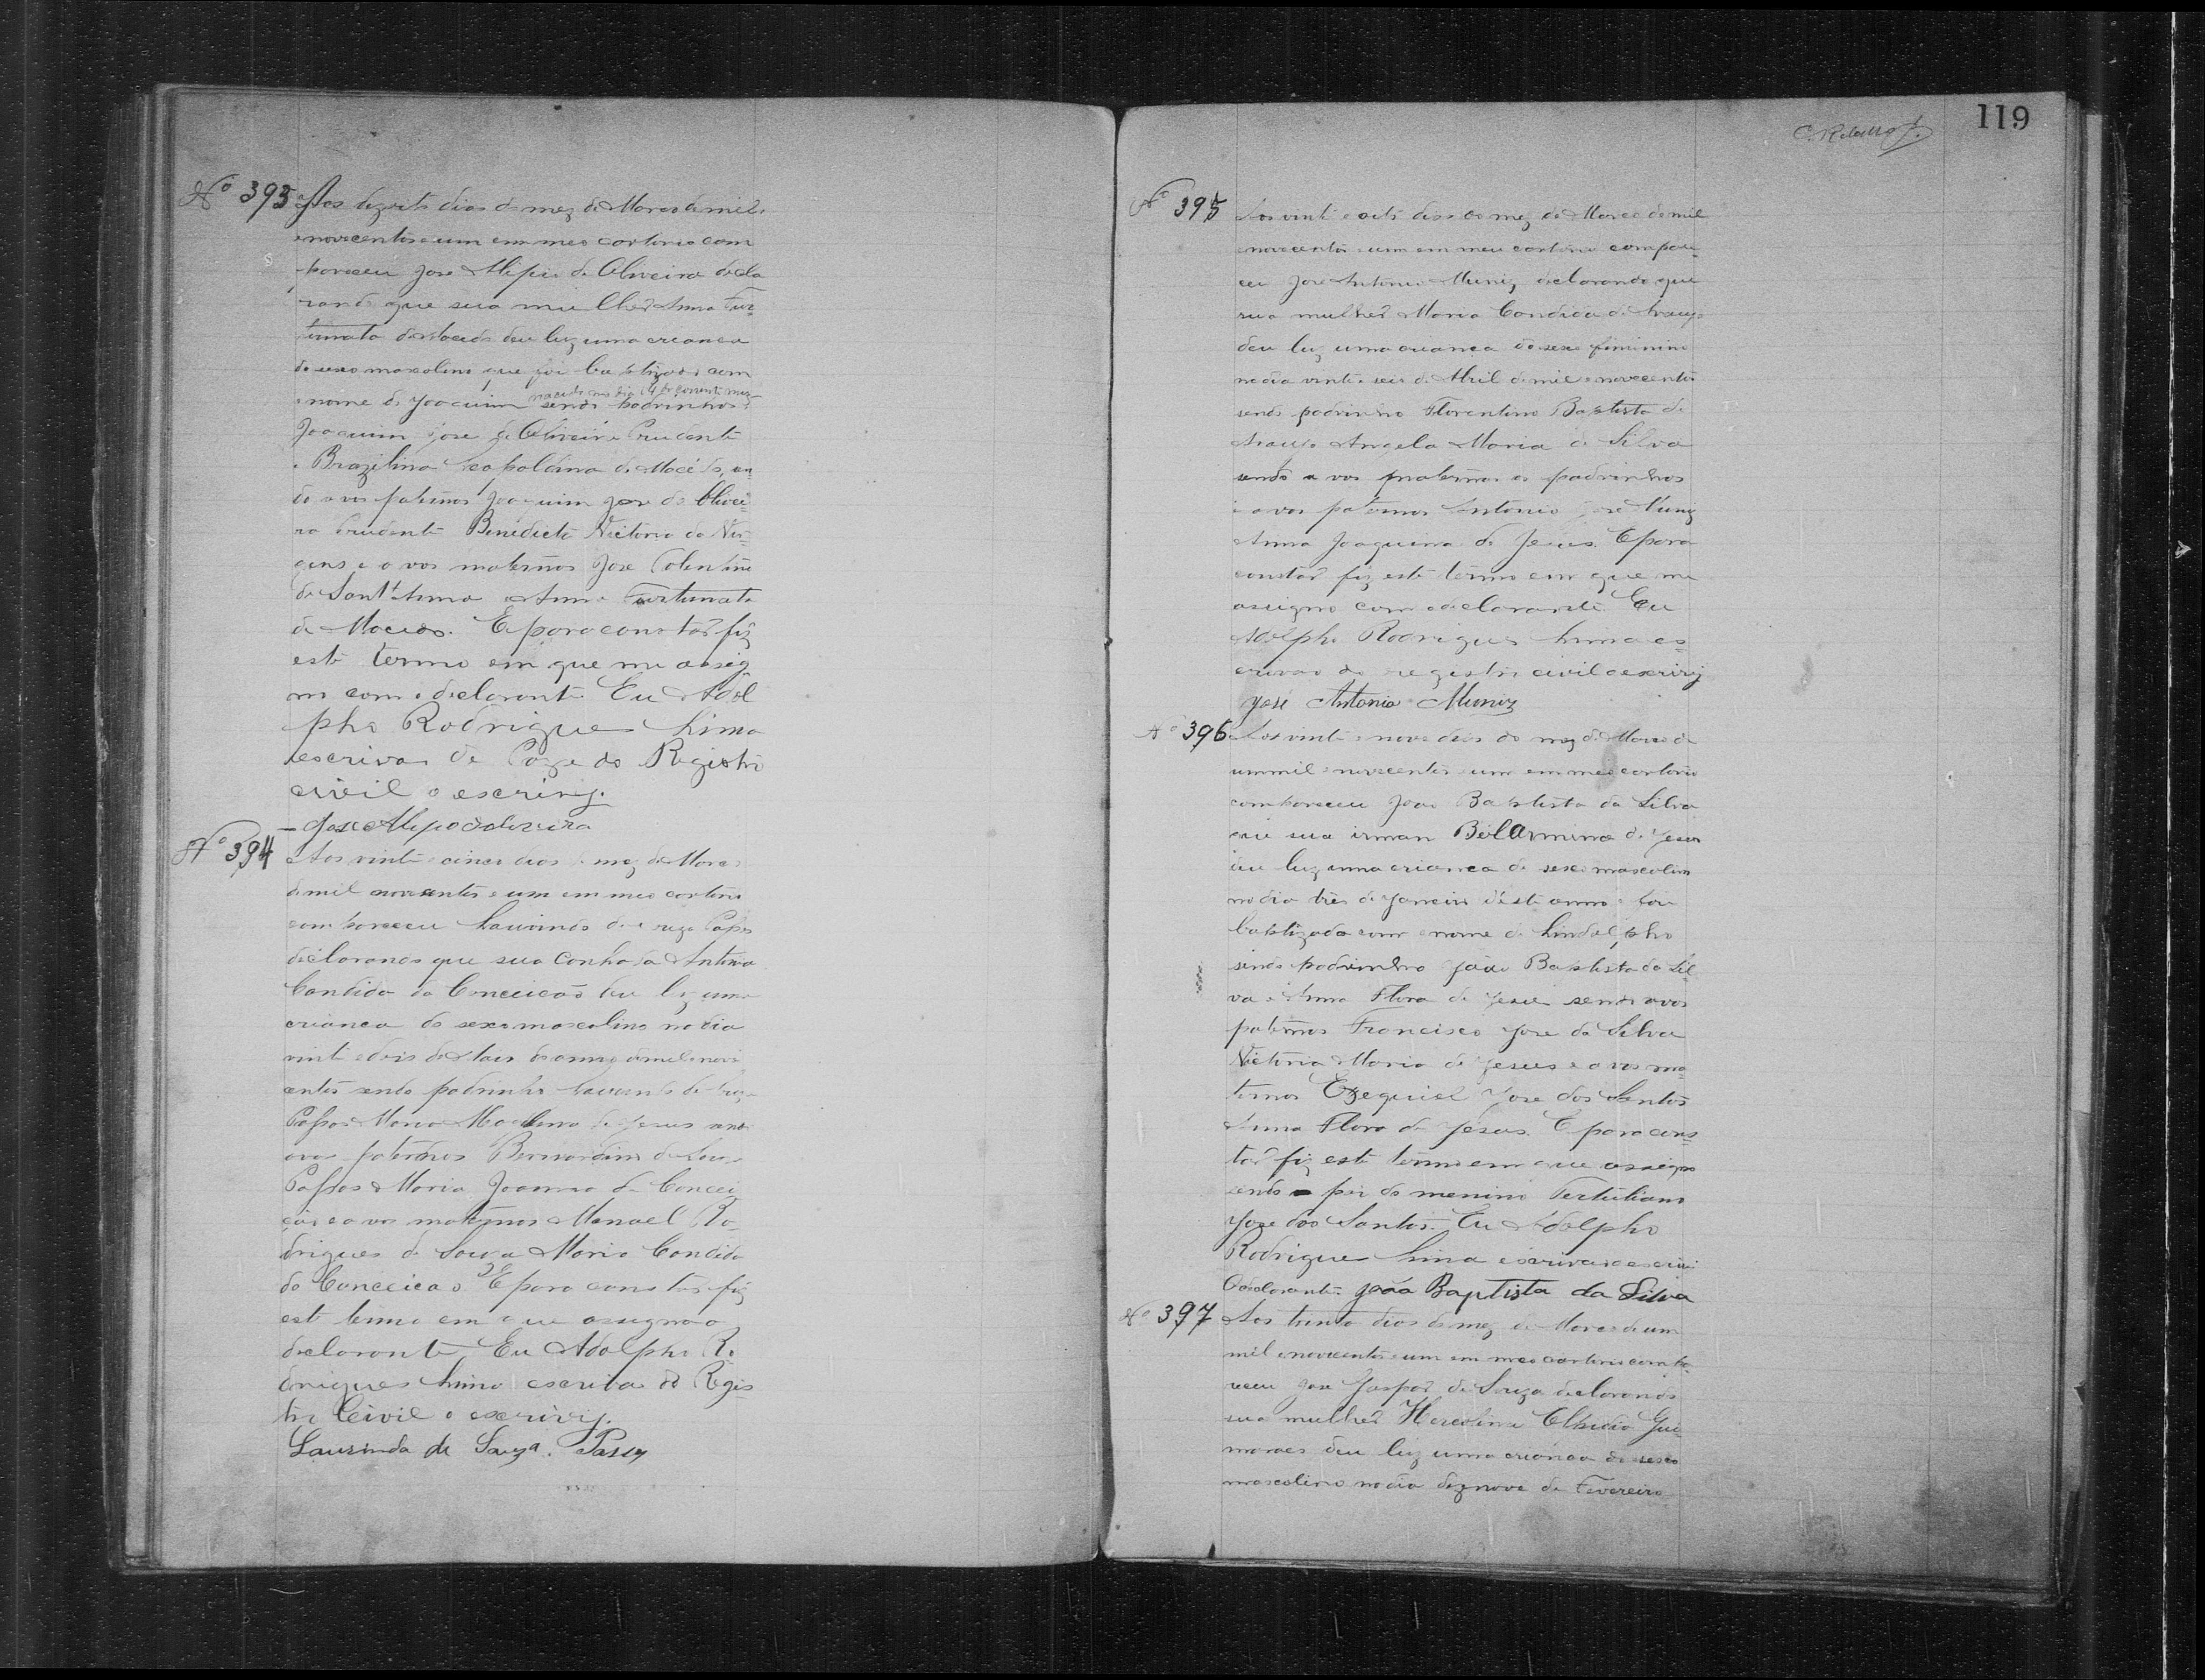 Nº 393 Aos dezoito dias do mez de Março de mil
e novecentos e um em meo cartorio com
pareceu Jose Alipio de Oliveira decla
rando que sua mulher Anna For
tunata de Macedo deu luz uma creança
do sexo mascolino que foi baptizado com
nascido no dia 14 do corrente mez
o nome de Joaquim sendo padrinhos
Joaquim Jose de Oliveira Prudente
e Brazilina Leopoldina de Macêdo, sen
do avos paternos Joaquim Jose de Olivei-
ra Prudente Benedicta Victoria da Vir-
gens e avos maternos Jose Tolentino
de Sant'Anna Anna Fortunata
de Macedo. E para constar fiz
este termo em que me assig
no com o declarante Eu Adol
pho Rodrigues Lima
escrivão de Paz e do Registro
civil o escrivy.
Jose Alipo de olveira
Nº 394 Aos vinte e cinco dias do mez de Março
de mil novecentos e um em meo cartorio
compareceu Laurindo de Souza Passos
declarando que sua Conhada Antonia
Candida da Conceicão deu luz uma
criança do sexo mascolino no dia
vinte e dois de Maio do anno de mil e nove
centos sendo padrinho Laurindo de Souza
Passos Maria Magdalena de Jesus sendo
avos paternos Bernardino de Souza
Passos Maria Joanna da Concei
ção e avos maternos Manoel Ro
drigues de Souza Maria Candida
da Conceicão E para constar fiz
este termo em que assigna o
declarante, Eu Adolpho Ro
drigues Lima escrivão do Regis
tro Civil o escrivy.
Laurindo de Souza. Passos
119
Nº 395 Aos vinte e oito dias do mez de Março de mil
e novecentos e um em meu cartorio compare-
ceu Jose Antonio Muniz declarando que
sua mulher Maria Candida de Araujo
deu luz uma criança do sexo feminino
no dia vinte e seis de Abril de mil e novecentos
sendo padrinho Florentino Baptista de
Araujo Angela Maria da Silva
sendo avos maternos os padrinhos
e avos paternos Antonio Jose Muniz
Anna Joaquina de Jesus. E para
constar fiz este termo em que me
assigno com o declarante. Eu
Adolpho Rodrigues Lima es-
crivão do registro civil o escrivy
José Antonio Muniz
Nº 396 Aos vinte e nove dias do mez de Março de
um mil e novecentos e um em meo cartorio
compareceu João Baptista da Silva
que sua irman Belarmina de Jesus
deu luz uma criança do sexo mascolino
no dia três de Janeiro d'este anno e foi
baptizado com o nome de Lindolpho
sendo padrinho João Baptista da Sil-
va e Anna Flora de Jesus sendo avos
paternos Francisco Jose da Silva
Victoria Maria de Jesus e avos ma-
ternos Ezequiel Jose dos Santos
Anna Flora de Jesus. E para cons-
tar fiz este termo em que assigno
sendo pai do menino Tertuliano
Jose dos Santos. Eu Adolpho
Rodrigues Lima escrivão o escrivi
O declarante João Baptista da Silva
Nº 397 Aos trinta dias do mez de Março de um
mil e novecentos e um em meo cartorio compa-
receu Jose Gaspar de Souza declarando
sua mulher Hercolina Gui-
maraes deu luz uma criança do sexo
mascolino no dia deznove de Fevereiro